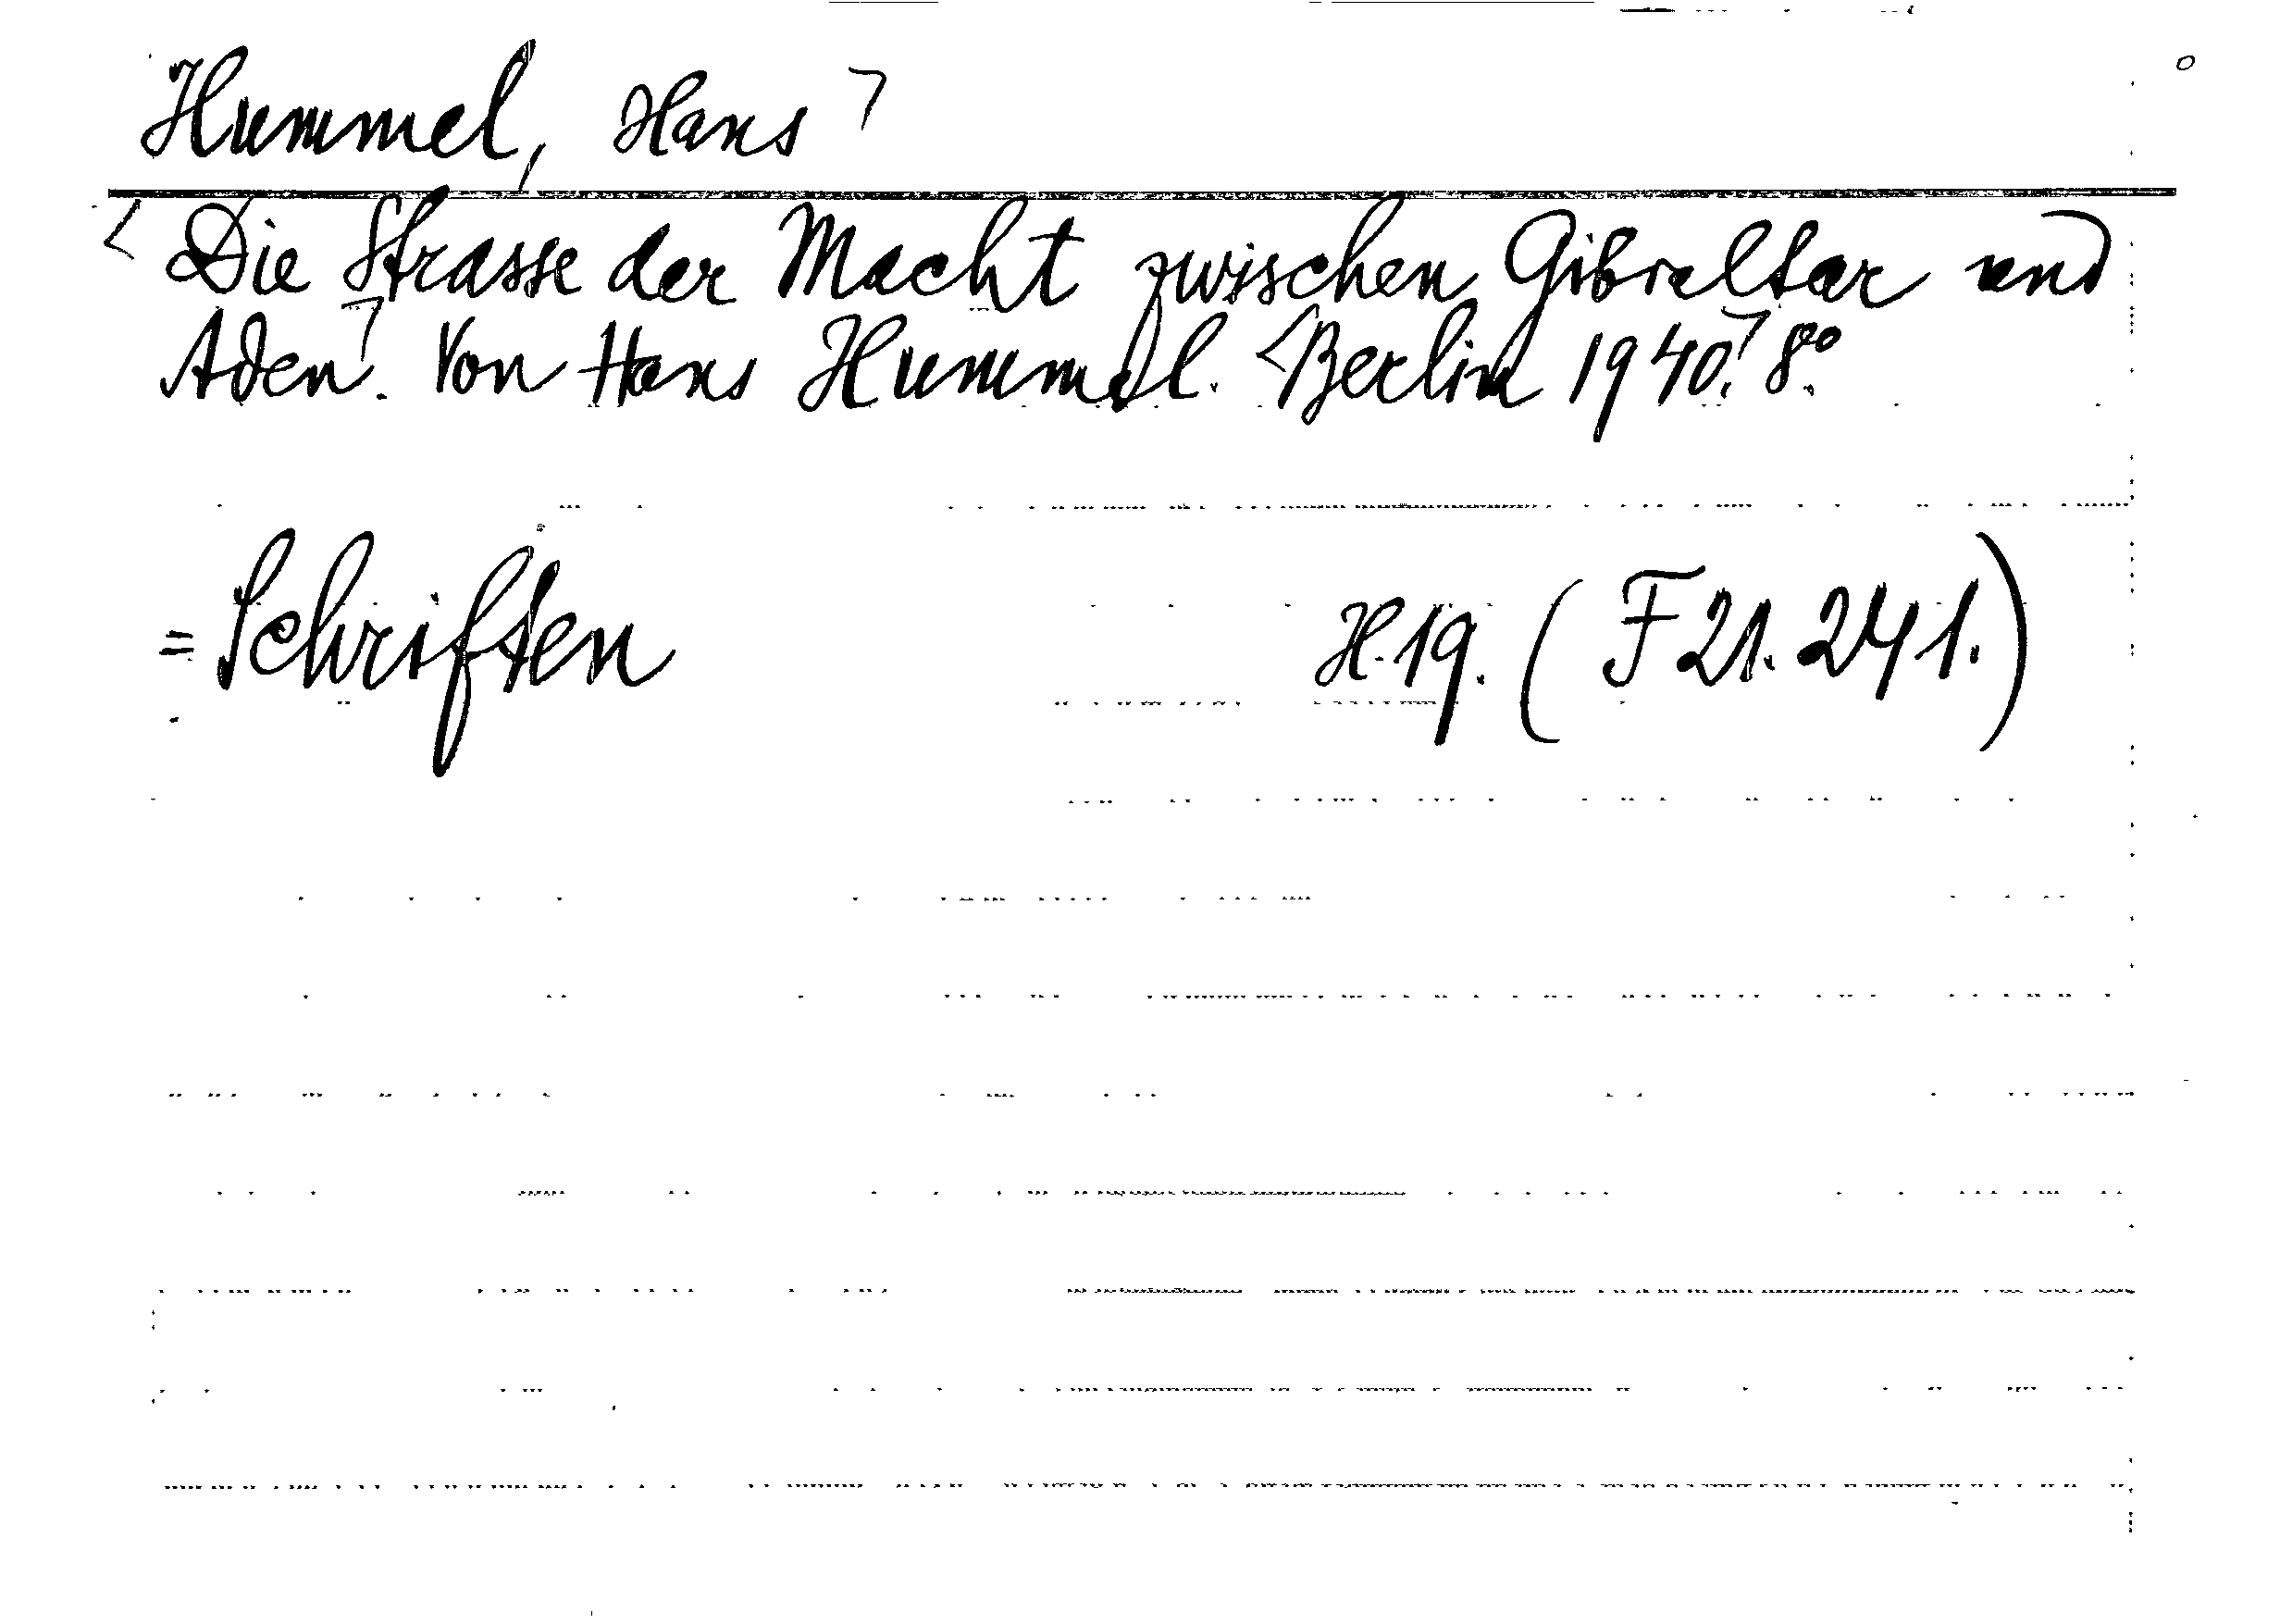 Hummel, Hans ⌉
< Die Strasse der Macht zwischen Gibraltar und
Aden⌉. Von Hans Hummel. <Berlin 1940.⌉ 8º.
= Schriften H. 19. (F 21. 241.)